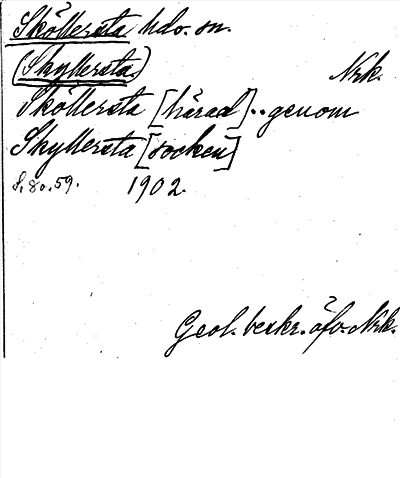 Sköllersta hdo. sn.
(Skyllersta)
Nrk.
Sköllersta [härad]..genom
Skyllersta [socken]
s. 80. 59. 1902.
Geol. beskr. öfv. Nrk.